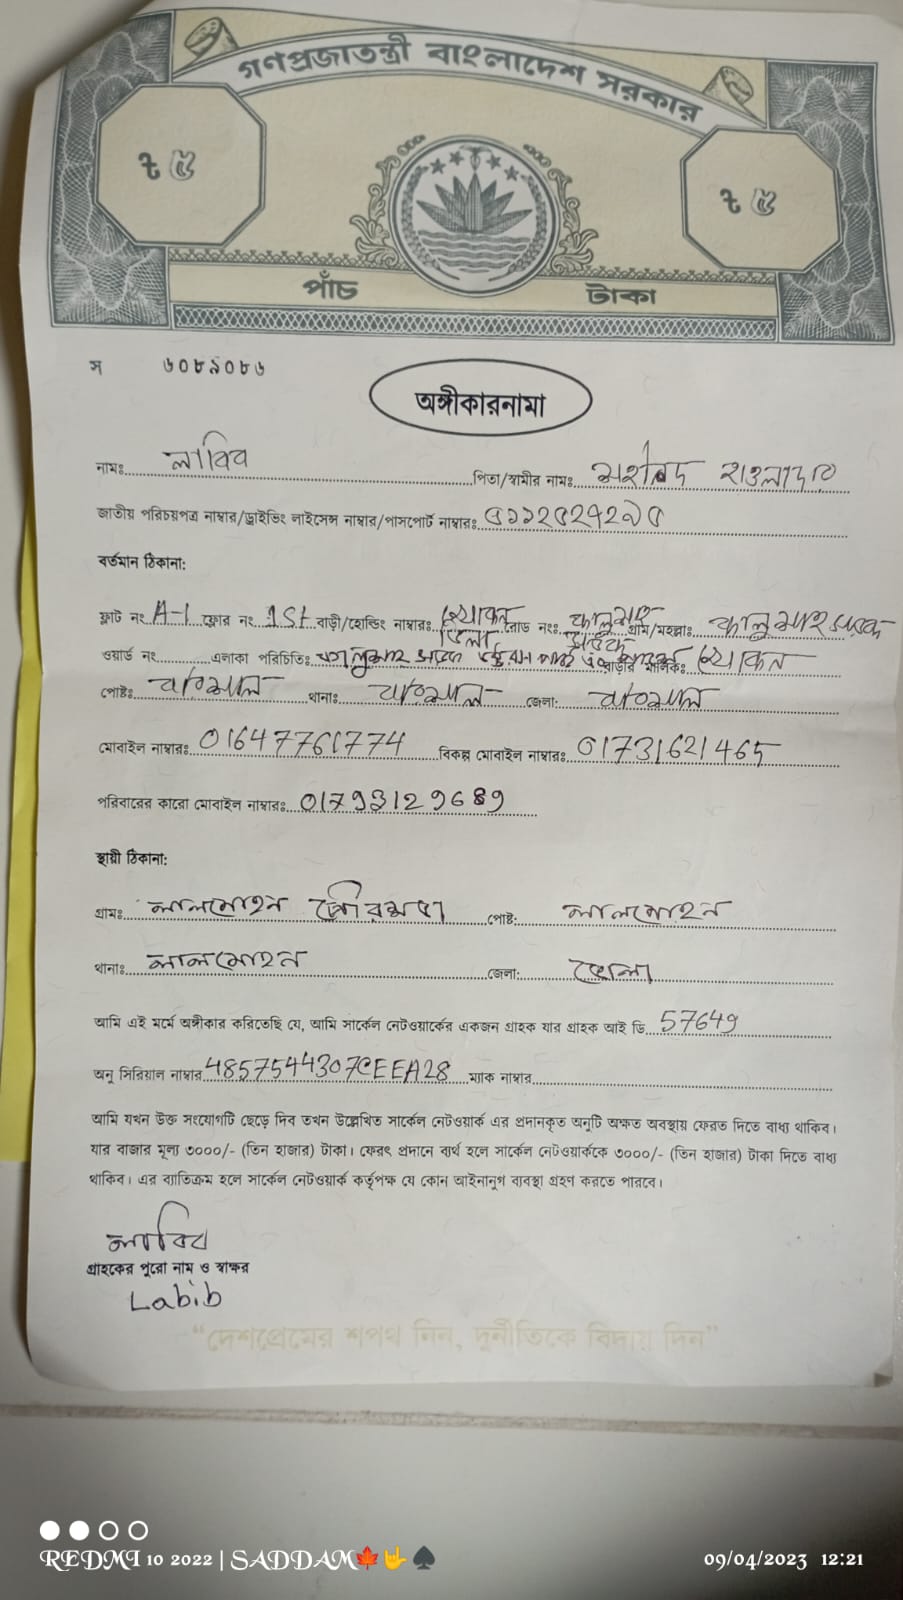 গণপ্রজাতন্ত্রী বাংলাদেশ সরকার
৳ ৫ ৳ ৫
পাঁচ টাকা
স ৬০৮৯০৮৬
অঙ্গীকারনামা
নামঃ লাবিব পিতা/স্বামীর নামঃ হাওলাদার
জাতীয় পরিচয়পত্র নাম্বার/ড্রাইভিং লাইসেন্স নাম্বার/পাসপোর্ট নাম্বারঃ
বর্তমান ঠিকানা:
ফ্লাট নং A-1 ফ্লোর নং 1St বাড়ী/হোল্ডিং নাম্বারঃ খোকন ভিলা রোড নং গ্রাম/মহল্লাঃ
ওয়ার্ড নং এলাকা পরিচিতিঃ বাড়ীর মালিকঃ খোকন
পোষ্টঃ বরিশাল থানাঃ বরিশাল জেলা: বরিশাল
মোবাইল নাম্বারঃ 01647761774 বিকল্প মোবাইল নাম্বারঃ 01731621465
পরিবারের কারো মোবাইল নাম্বারঃ
স্থায়ী ঠিকানা:
গ্রামঃ লালমোহন পৌরসভা পোষ্ট: লালমোহন
থানাঃ লালমোহন জেলা: ভোলা
আমি এই মর্মে অঙ্গীকার করিতেছি যে, আমি সার্কেল নেটওয়ার্কের একজন গ্রাহক যার গ্রাহক আই ডি 57649
অনু সিরিয়াল নাম্বার 4857544307CEEA28 ম্যাক নাম্বার
আমি যখন উক্ত সংযোগটি ছেড়ে দিব তখন উল্লেখিত সার্কেল নেটওয়ার্ক এর প্রদানকৃত অনুটি অক্ষত অবস্থায় ফেরত দিতে বাধ্য থাকিব।
যার বাজার মূল্য ৩০০০/- (তিন হাজার) টাকা। ফেরৎ প্রদানে ব্যর্থ হলে সার্কেল নেটওয়ার্ককে ৩০০০/- (তিন হাজার) টাকা দিতে বাধ্য
থাকিব। এর ব্যতিক্রম হলে সার্কেল নেটওয়ার্ক কর্তৃপক্ষ যে কোন আইনানুগ ব্যবস্থা গ্রহণ করতে পারবে।
লাবিব
গ্রাহকের পুরো নাম ও স্বাক্ষর
Labib
"দেশপ্রেমের শপথ নিন, দুর্নীতিকে বিদায় দিন"
REDMI 10 2022 | SADDAM🍁🤟♠
09/04/2023 12:21